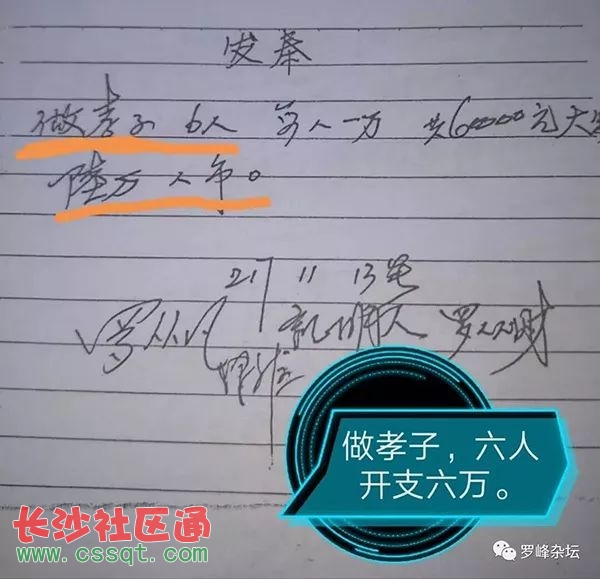 发奉
做孝子 6人 每人一万 共60000元大写
陆万人币。
217 11 13号
罗从凡 证明人 罗人财
做孝子，六人
开支六万。
长沙社区通
www.cssqt.com
罗峰杂坛